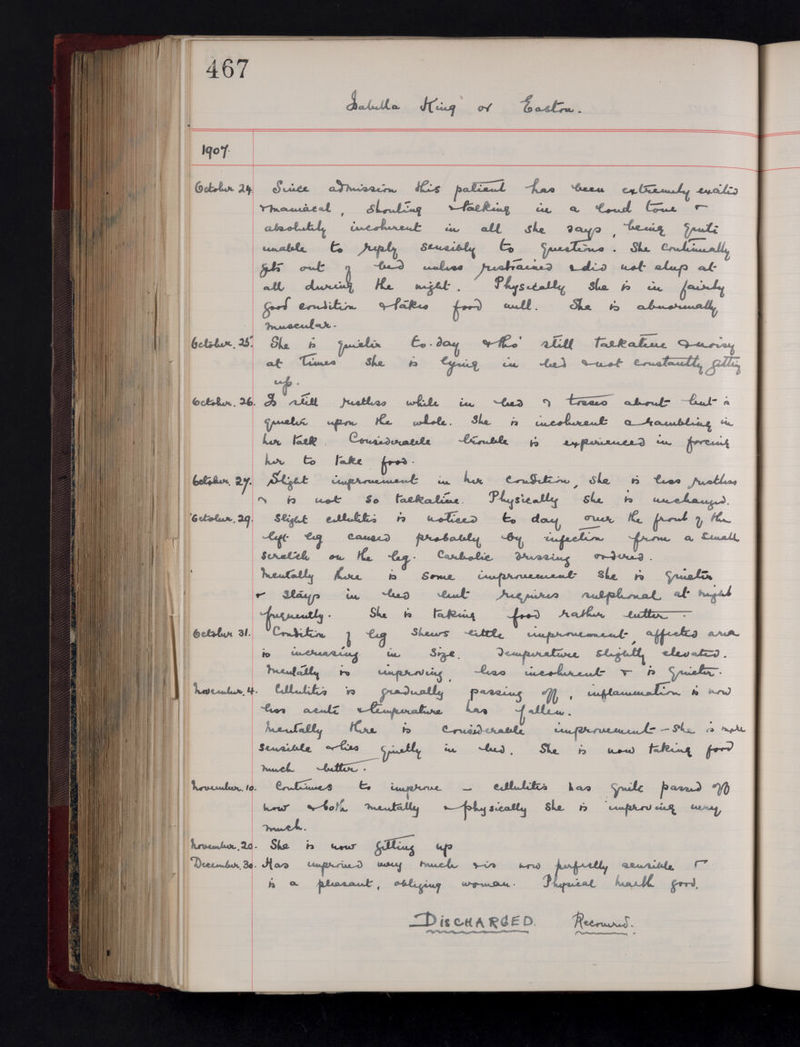 467
Isabella King or Easton.
1907.
October 24. Since admission this patient has been extremely excited
& maniacal, shouting & talking in a loud tone &
absolutely incoherent in all she says, being quite
unable to reply sensibly to questions. She continually
gets out of bed unless restrained & did not sleep at
all during the night. Physically she is in fairly
good condition & takes food well. She is abnormally
muscular.
October. 25. She is quieter to-day & tho' still talkative & noisy
at times she is lying in bed & not constantly getting
up.
October. 26. Is still restless while in bed & tosses about but is
quieter upon the whole. She is incoherent & rambling in
her talk. Considerable trouble is experienced in forcing
her to take food.
October. 27. Slight improvement in her condition, she is less restless
& is not so talkative. Physically she is unchanged.
October. 29. Slight cellulitis is noticed to day over the front of the
left leg caused probably by infection from a small
scratch on the leg. Carbolic dressing ordered.
Mentally there is some improvement she is quieter
& stays in bed but requires sulphonal at night
frequently. She is taking food rather better.
October 31. Condition of leg shews little improvement, affected area
is increasing in size. Temperature slightly elevated.
Mentally is improving, less incoherent & is quieter.
November. 4. Cellulitis is gradually passing off, inflammation is now
less acute & temperature has fallen.
Mentally there is considerable improvement - she is more
sensible & lies quietly in bed. She is now taking food
much better.
November. 10. Continues to improve - cellulitis has quite passed off
now & both mentally & physically she is improving very
much.
November. 20. She is now getting up
December. 30. Has improved very much & is now perfectly sensible &
is a pleasant, obliging woman. Physical health good.
DISCHARGED. Recovered.